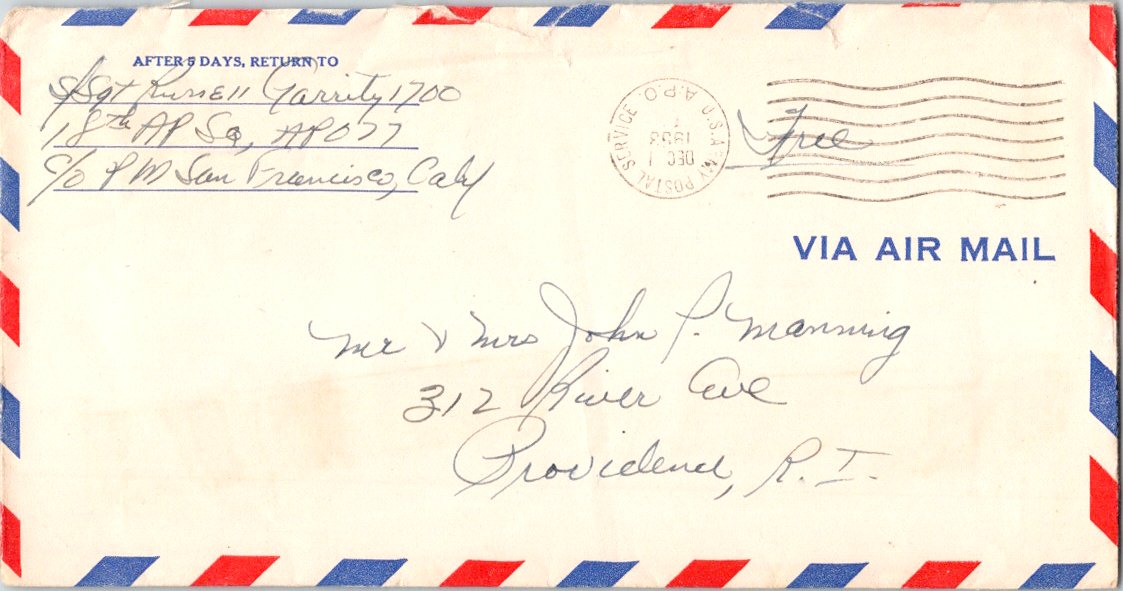 AFTER 5 DAYS, RETURN TO
S/Sgt Russell Garrity 1700
18th AP Sq, APO 77
c/o PM San Francisco, Calif
U.S. ARMY POSTAL SERVICE
A.P.O.
DEC 1
1953
Free
VIA AIR MAIL
Mr & Mrs John P. Manning
312 River Ave
Providence, R.I.